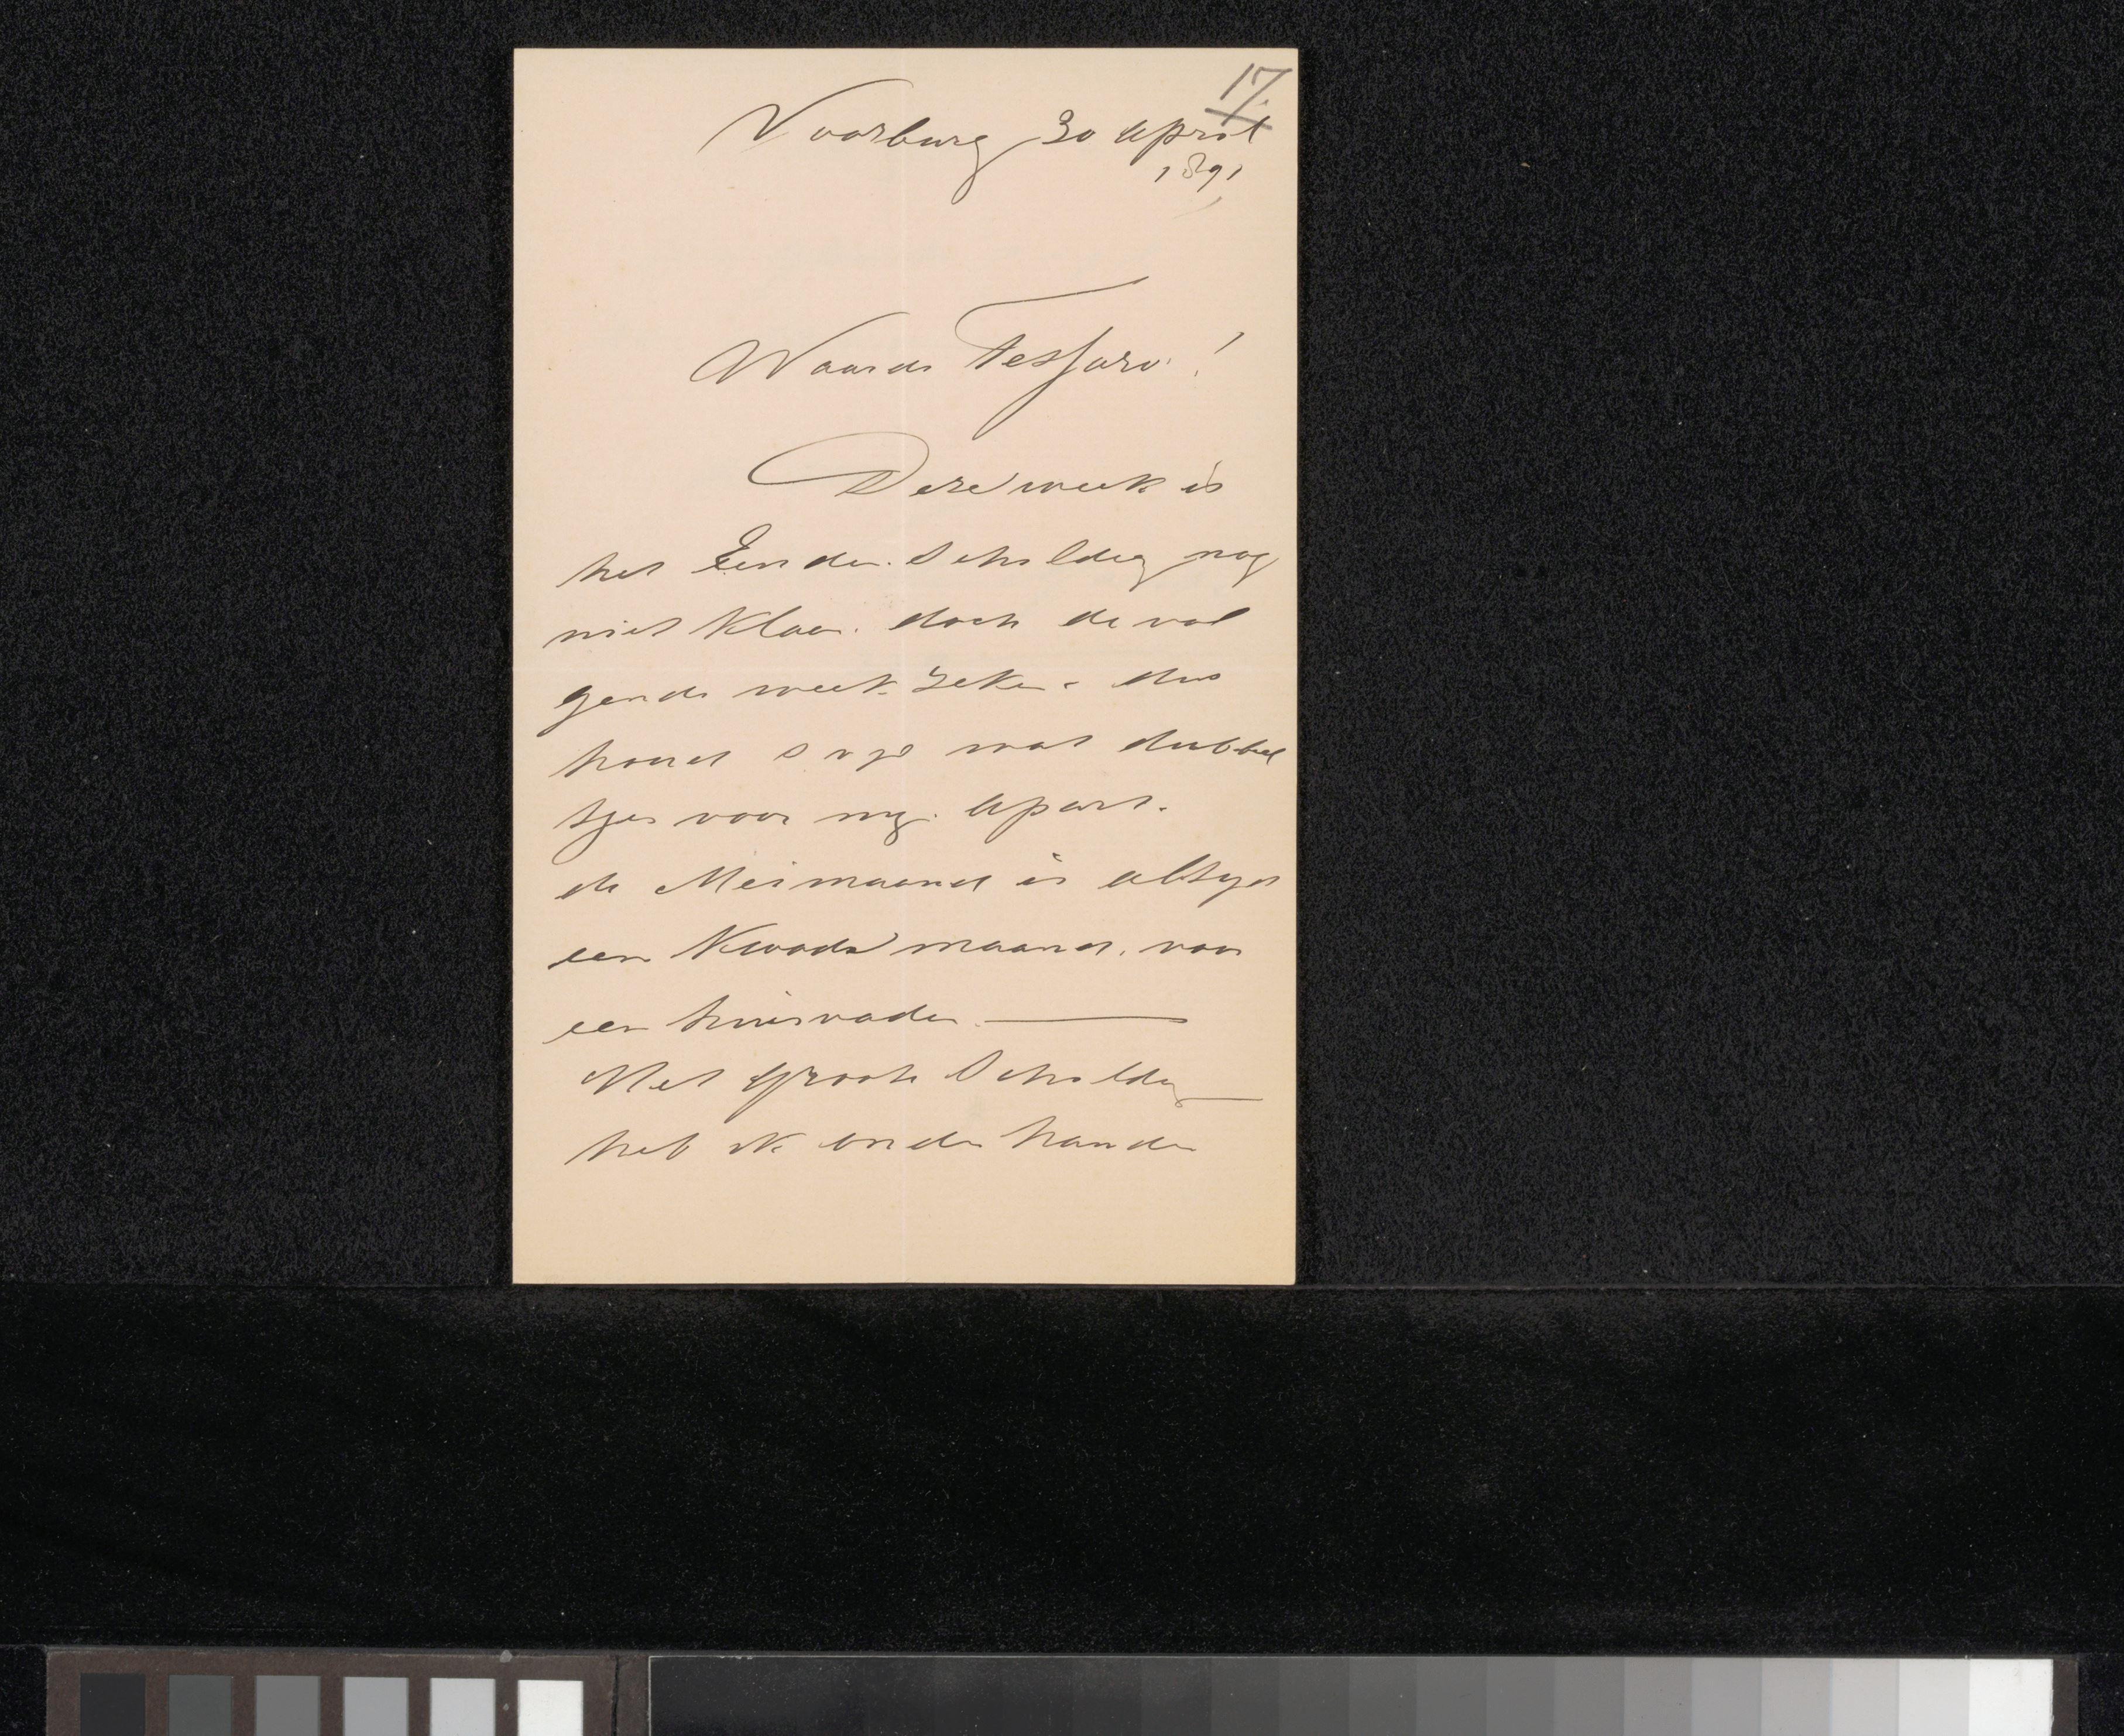 17.
Voorburg 30 april
1891
Waarde Tessaro!
Deze week is
het Eenden Schildeg nog
niet Klaar. doch de vol
gende week zeker. dus
houd s v p wat dubbel
tjes voor my. apart.
de Meimaand is altyd
een Kwade maand. voor
een huisvader
Het groote Schildg
heb ik onder handen